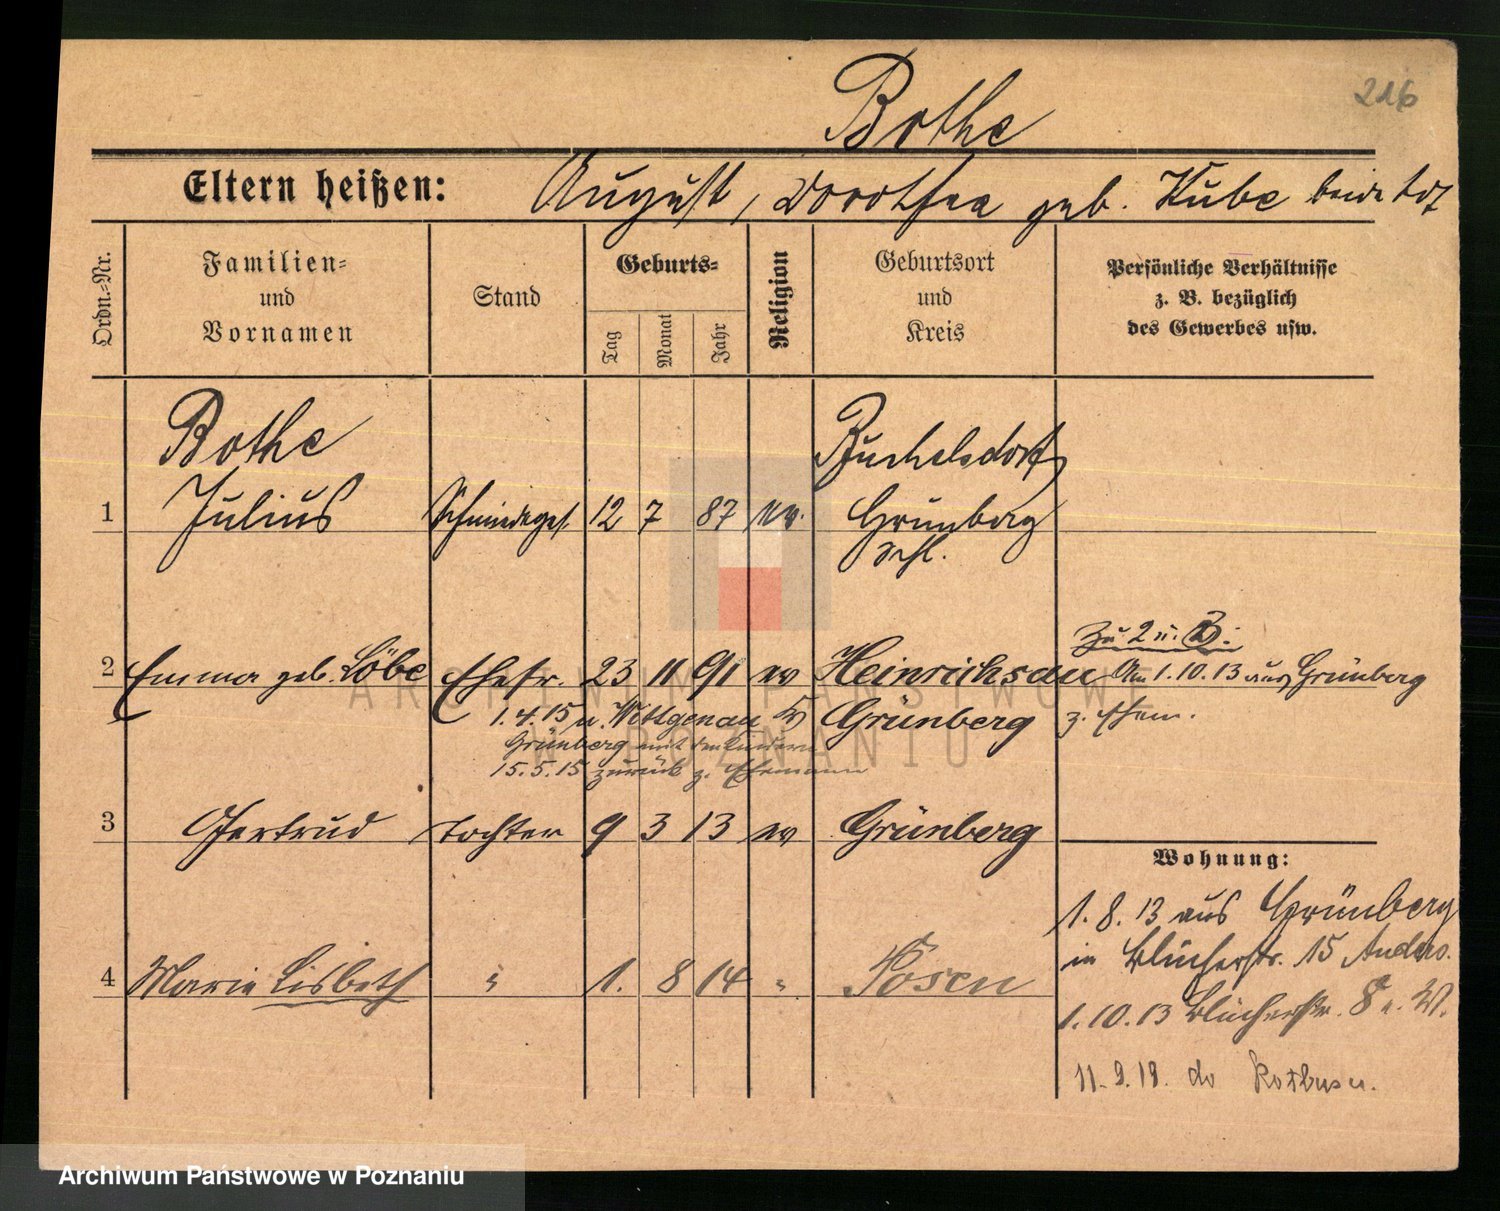 216
Bothe
Eltern heißen: August, Dorothea geb. Kube beide tot
Ordn.-Nr.
Familien-
und
Vornamen
Stand
Geburts-
Tag
Monat
Jahr
Religion
Geburtsort
und
Kreis
Persönliche Verhältnisse
z. B. bezüglich
des Gewerbes usw.
Bothe Buchelsdorf
1 Julius Schmiedeges. 12 7 87 ev. Grünberg
Schl.
Zu 2 u. 3.
2 Emma geb. Löbe Ehefr. 23 11 91 ev Heinrichsau Am 1.10.13 aus Grünberg
1.4.15 n. Wittgenau Kr Grünberg z. Ehem.
Grünberg mit den Kindern
15.5.15 zurück z. Ehemann
3 Gertrud Tochter 9 3 13 ev Grünberg
Wohnung:
1.8.13 aus Grünberg
in Blücherstr. 15
4 Marie Lisbeth " 1. 8 14 " Posen
1.10.13 Blücherstr. 8 b. W.
do
ARCHIWUM PAŃSTWOWE
W POZNANIU
Archiwum Państwowe w Poznaniu